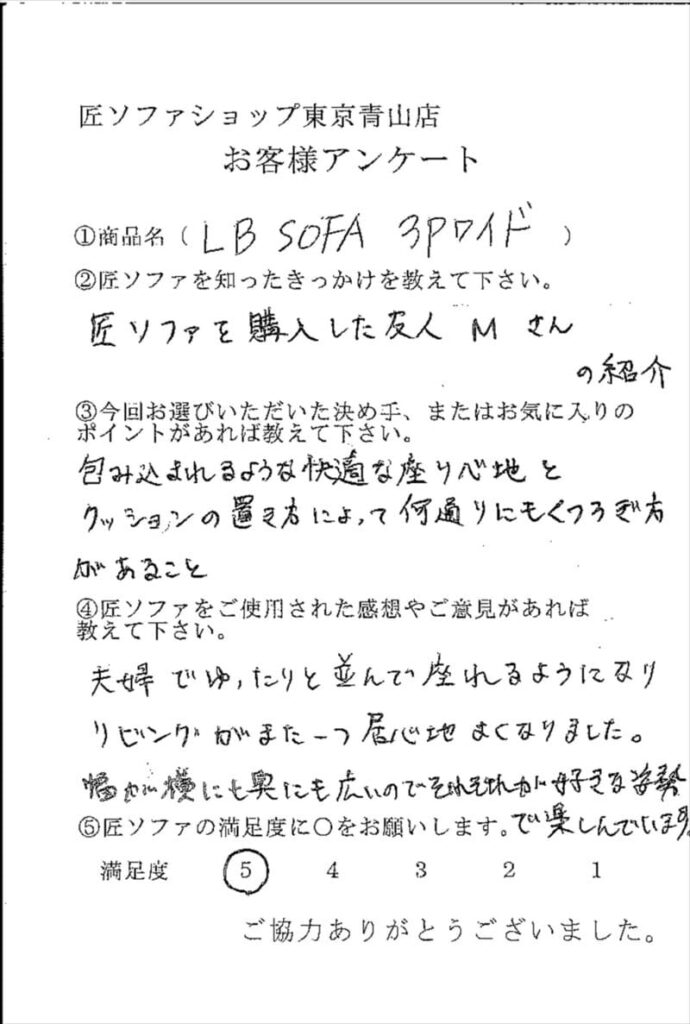 匠ソファショップ東京青山店
お客様アンケート
①商品名（LB SOFA 3Pワイド）
②匠ソファを知ったきっかけを教えて下さい。
匠ソファを購入した友人 Mさん
の紹介
③今回お選びいただいた決め手、またはお気に入りの
ポイントがあれば教えて下さい。
包み込まれるような快適な座り心地と
クッションの置き方によって何通りにもくつろぎ方
があること
④匠ソファをご使用された感想やご意見があれば
教えて下さい。
夫婦でゆったりと並んで座れるようになり
リビングがまた一つ居心地よくなりました。
幅が横にも奥にも広いのでそれぞれが好きな姿勢
で楽しんでいます。
⑤匠ソファの満足度に○をお願いします。
満足度 5 4 3 2 1
ご協力ありがとうございました。